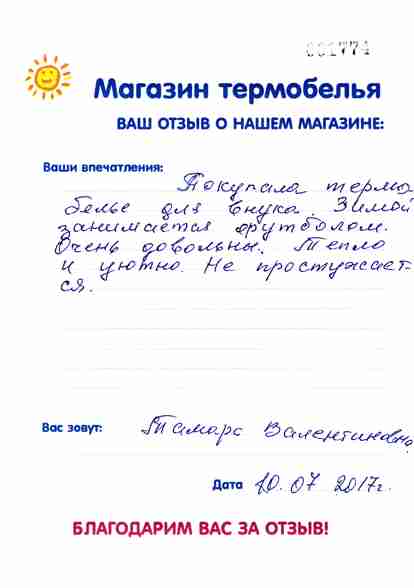 001774
Магазин термобелья
ВАШ ОТЗЫВ О НАШЕМ МАГАЗИНЕ:
Ваши впечатления:
Покупала термо
белье для внука. Зимой
занимается футболом.
Очень довольны. Тепло
и уютно. Не простужает-
ся.
Вас зовут: Тамара Валентиновна
Дата 10.07 2017г.
БЛАГОДАРИМ ВАС ЗА ОТЗЫВ!